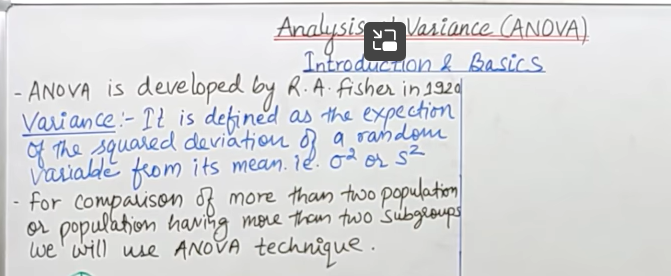 Analysis of Variance (ANOVA)
Introduction & Basics
- ANOVA is developed by R.A. fisher in 1920
Variance:- It is defined as the expection
of the squared deviation of a random
variable from its mean. ie. σ² or S²
- for comparison of more than two population
or population having more than two subgroups
we will use ANOVA technique.